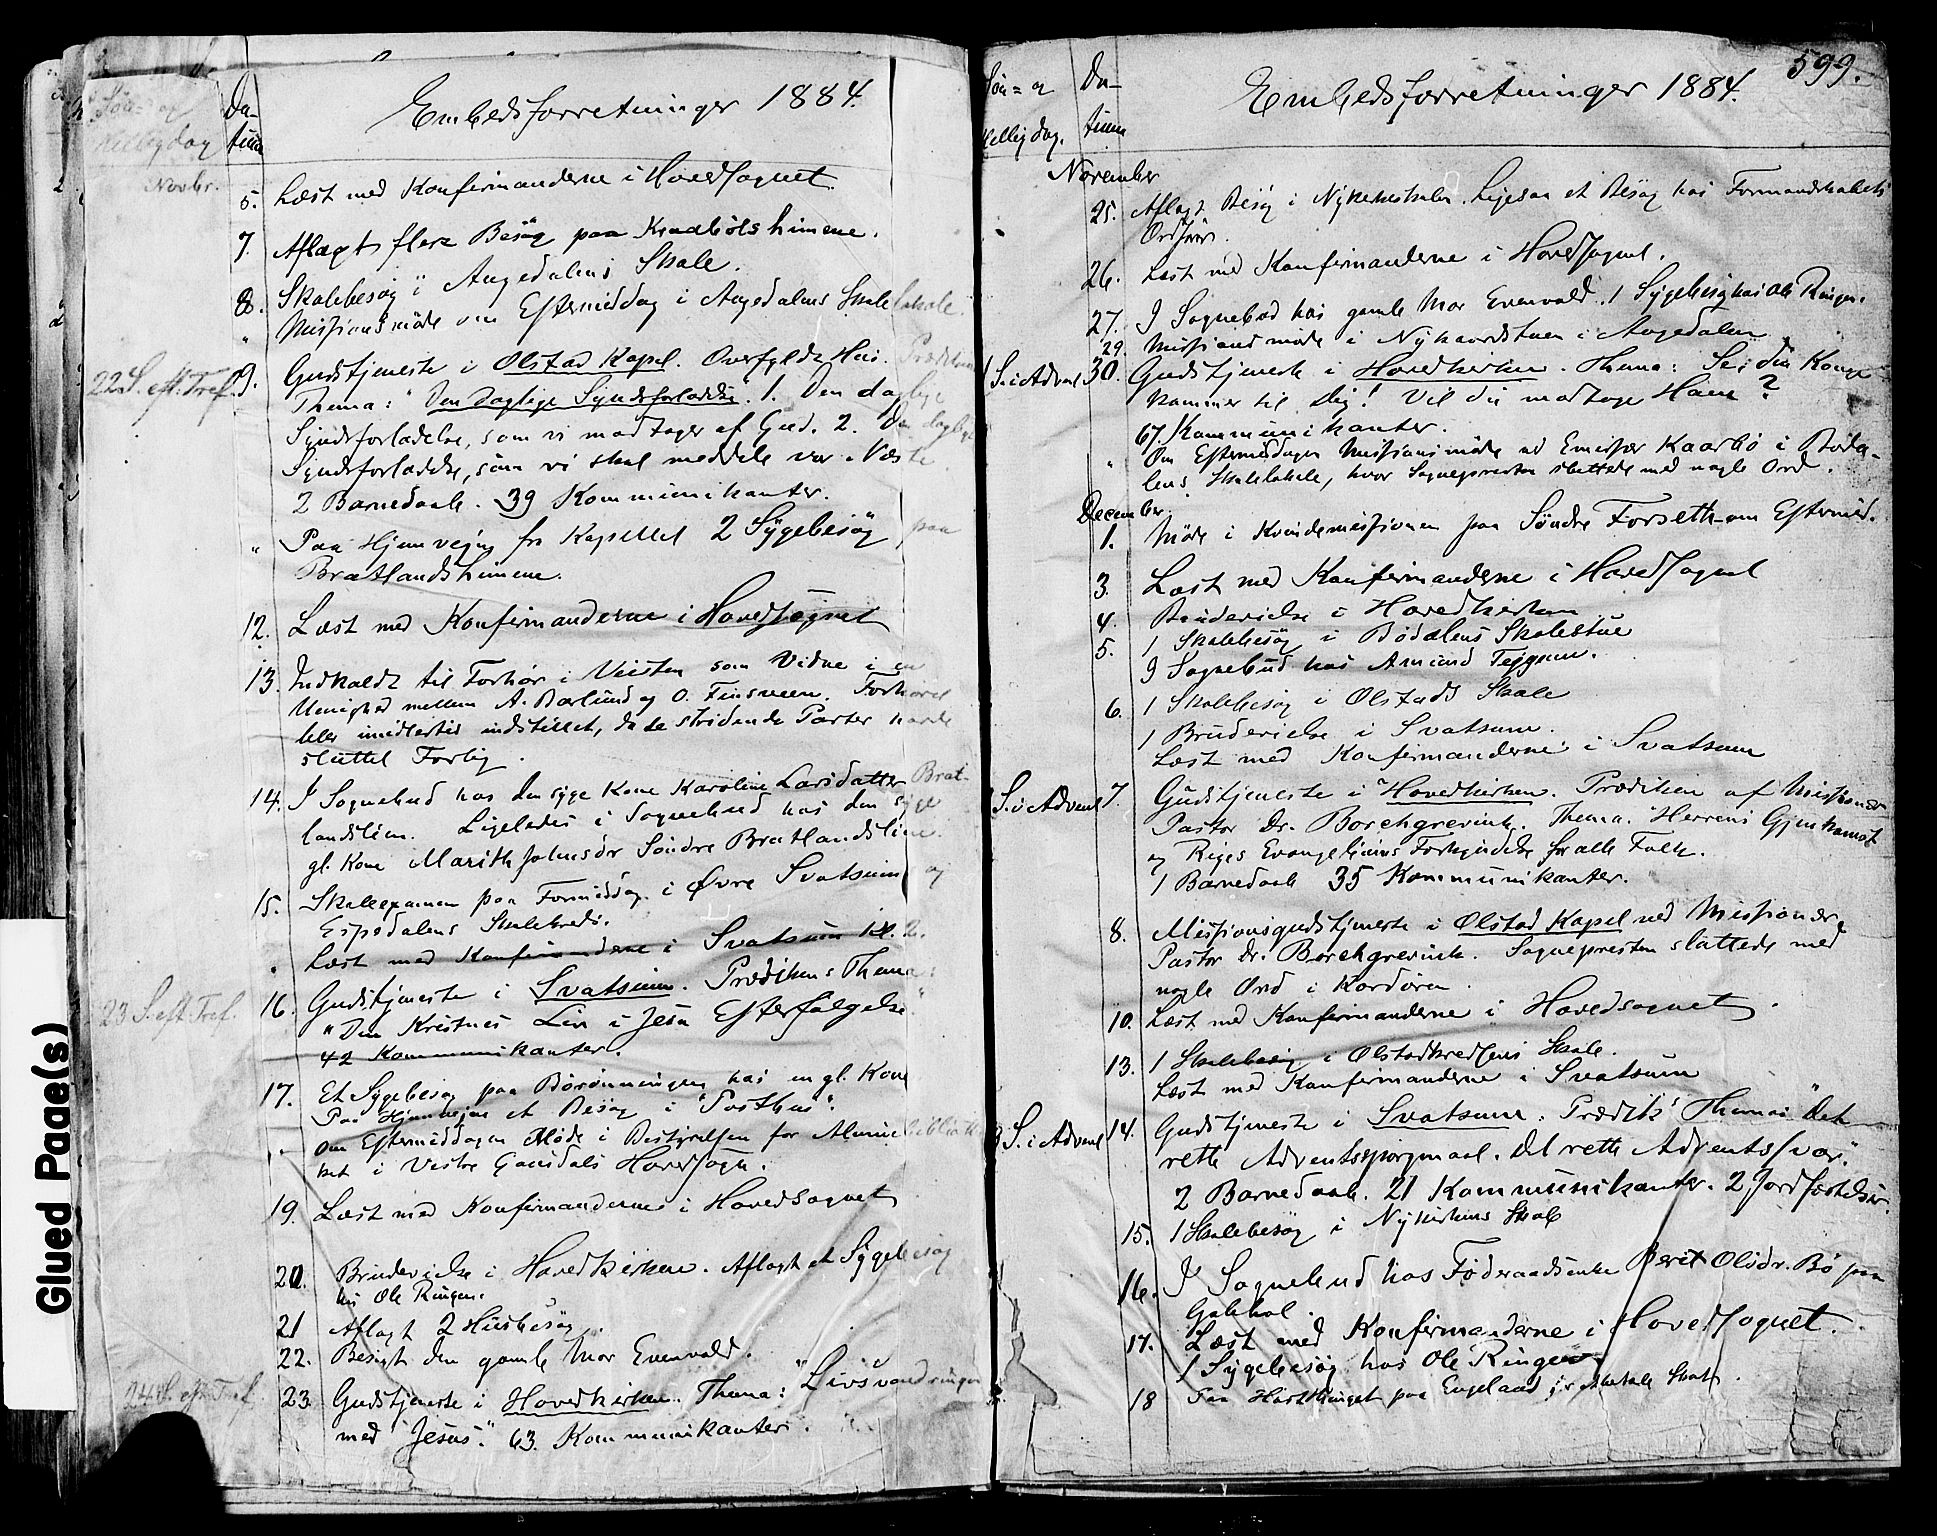 Søn- og
Helligdag
Da-
tum
Embedsforretninger 1884.
Novbr.
5. Læst med Konfirmanderne i Hovedsognet.
7. Aflagt flere Besøg paa
8. Skolebesøg i Augedalens Skole.
" Missionsmöde om Eftermiddag i Augedalens Skolelokale.
22 S. eft. Tref. 9. Gudstjeneste i Olstad Kapel. Overfyldt Hus.
Thema: "Den daglige Syndsforladelse". 1. Den daglige
Syndsforladelse, som vi modtager af Gud. 2. Den daglige
Syndsforladelse, som vi skal meddele vor Næste.
2 Barnedaab. 39 Kommunikanter.
" Paa Hjemvejen fra Kapellet 2 Sygebesøg paa
Bratlandshimene.
12. Læst med Konfirmanderne i Hovedsognet
13. Indkaldt til Forhør i Veisten som Vidne i en
Uenighed mellem A. Bœlund og O. Finsveen. Forhøret
blev imidlertid indstillet, da de stridende Parter havde
sluttet Forlig.
14. I Sognebud hos den syge Kone Karoline Larsdatter Brat-
landslien. Ligeledes i Sognebud hos den syge
gl. Kone Marith Johnsdr Søndre Bratlandslien.
15. Skoleexamen paa Formiddag i Øvre Svatsum og
Espedalens Skolekreds.
" Læst med Konfirmanderne i Svatsum Kl. 2.
23 S. eft. Tref. 16. Gudstjeneste i Svatsum. Prædikens Thema:
"Den Kristnes Liv i Jesu Efterfølgelse."
42 Kommunikanter.
17. Et Sygebesøg paa hos en gl. Kone
Paa Hjemvejen et Besøg i "Posthus".
" Om Eftermiddagen Møde i Bestyrelsen for Almuebibliothe-
ket i Vestre Gausdals Hovedsogn.
19. Læst med Konfirmanderne i Hovedsognet
20. Brudevielse i Hovedkirken. Aflagt et Sygebesøg
hos Ole Ringen.
21 Aflagt 2 Husbesøg.
22. Besøgt den gamle Mor Evenvold.
24 S. eft. Tref. 23. Gudstjeneste i Hovedkirken. Thema: "Livsvandringen
med Jesus". 63. Kommunikanter.
Glued Page(s)
599.
Søn- og
Helligdag.
Da-
tum
Embedsforretninger 1884.
November
25. Aflagt Besøg i Nykirkeskolen. Ligesaa et Besøg hos Formandskabets
Ordfører.
26. Læst med Konfirmanderne i Hovedsognet.
27. I Sognebud hos gamle Mor Evenvold. 1 Sygebesøg hos Ole Ringen.
29. Missionsmöde i i Augedalen
1 S. i Advent 30. Gudstjeneste i Hovedkirken. Thema: Se, din Konge
kommer til dig! Vil du modtage Ham?
67. Kommunikanter.
" Om Eftermiddagen Missionsmöde ved Emissær Kaarbø i Bøda-
lens Skolelokale, hvor Sognepresten sluttede med nogle Ord.
December.
1. Møde i Kvindemissionen paa Søndre Forseth om Eftermid.
3. Læst med Konfirmanderne i Hovedsognet
4. Brudevielse i Hovedkirken
5. 1 Skolebesøg i Bødalens Skolestue
I Sognebud hos Amund
6. 1 Skolebesøg i Olstads Skole
1 Brudevielse i Svatsum.
Læst med Konfirmanderne i Svatsum
2 S. i Advent 7. Gudstjeneste i Hovedkirken. Prædiken af Missionær
Pastor Dr. Borchgrevink. Thema: Herrens Gjenkomst
og Riges Evangeliums Forkyndelse for alle Folk.
1 Barnedaab 35 Kommunikanter.
8. Missionsgudstjeneste i Olstad Kapel ved Missionær
Pastor Dr. Borchgrevink. Sognepresten sluttede med
nogle Ord i Kordøren.
10. Læst med Konfirmanderne i Hovedsognet.
13. 1 Skolebesøg i Olstadkredsens Skole.
Læst med Konfirmanderne i Svatsum
3 S. i Advent 14. Gudstjeneste i Svatsum. Prædik. Thema: "Det
rette Adventsspørgsmaal. Det rette Adventssvar."
2 Barnedaab. 21 Kommunikanter. 2 Jordfæstelser.
15. 1 Skolebesøg i Nykirkens Skole
16. I Sognebud hos Føderaadsenke Berit Olsdr. Bø paa
17. Læst med Konfirmanderne i Hovedsognet.
1 Sygebesøg hos Ole Ringen
18 Paa Høstthinget paa Engeland for at betale Skat.